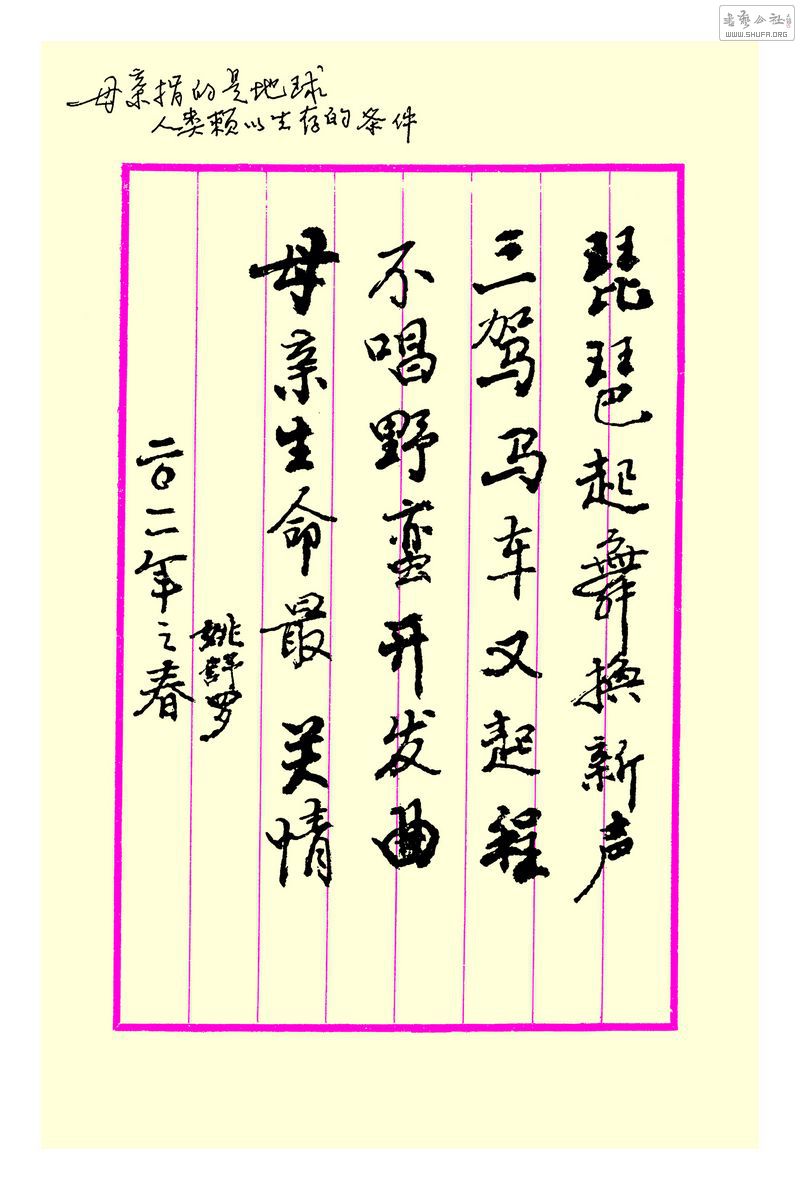 书艺公社
WWW.SHUFA.ORG
母亲指的是地球
人类赖以生存的条件
琵琶起舞换新声
三驾马车又起程
不唱野蛮开发曲
母亲生命最关情
姚群罗
二〇二年之春